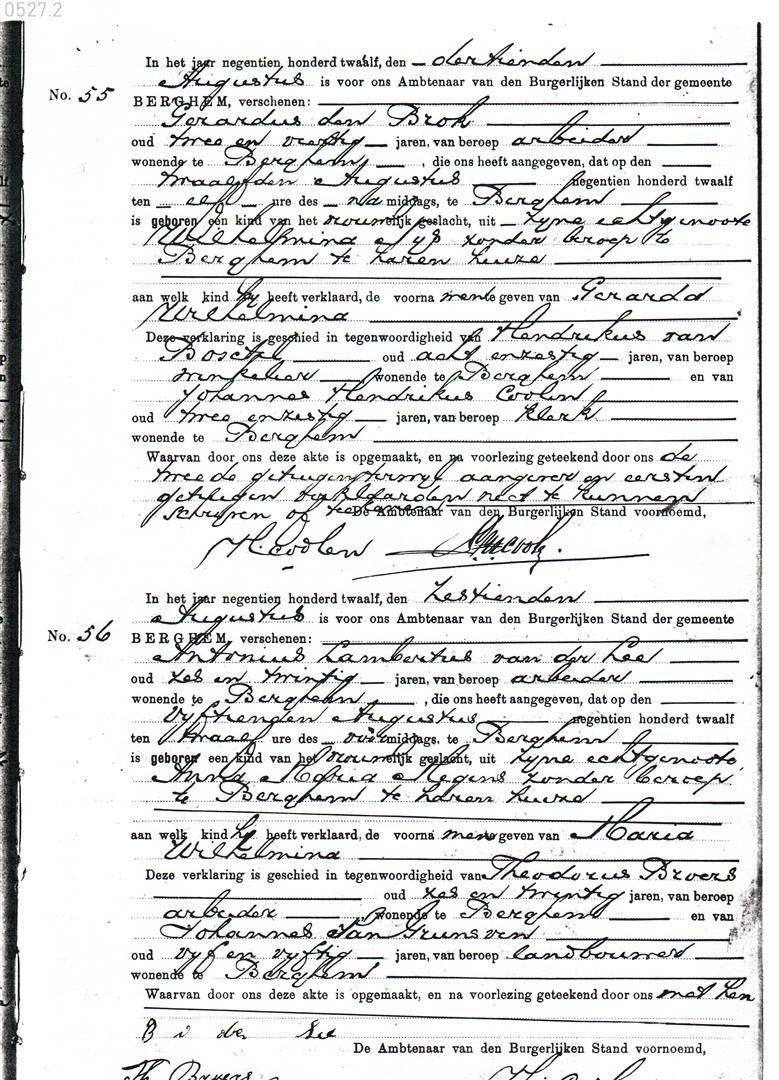 0527.2
In het jaar negentien honderd twaalf, den dertienden
Augustus is voor ons Ambtenaar van den Burgerlijken Stand der gemeente
No. 55 BERGHEM, verschenen:
Gerardus den Brok
oud twee en veertig jaren, van beroep arbeider
wonende te Berghem, die ons heeft aangegeven, dat op den
twaalfden Augustus negentien honderd twaalf
ten elf ure des na middags, te Berghem
is geboren een kind van het vrouwelijk geslacht, uit zyne echtgenoote
Wilhelmina zonder beroep te
Berghem te haren huize
aan welk kind hy heeft verklaard, de voorna mente geven van Gerarda
Wilhelmina
Deze verklaring is geschied in tegenwoordigheid van Hendrikus van
oud acht enzestig jaren, van beroep
winkelier wonende te Berghem en van
Johannes Hendrikus Coolen
oud twee enzestig jaren, van beroep klerk
wonende te Berghem
Waarvan door ons deze akte is opgemaakt, en na voorlezing geteekend door ons de
tweede getuigen terwyl aangever en eersten
getuigen verklaarden niet te kunnen
schryven of teekenen De Ambtenaar van den Burgerlijken Stand voornoemd,
H. Coolen
In het jaar negentien honderd twaalf, den zestienden
Augustus is voor ons Ambtenaar van den Burgerlijken Stand der gemeente
No. 56 BERGHEM, verschenen:
Antonius Lambertus van der Lee
oud zes en twintig jaren, van beroep arbeider
wonende te Berghem, die ons heeft aangegeven, dat op den
vyftienden Augustus negentien honderd twaalf
ten twaalf ure des voormiddags, te Berghem
is geboren een kind van het vrouwelijk geslacht, uit zyne echtgenoote
Anna Maria Megens zonder beroep
te Berghem te haren huize
aan welk kind hy heeft verklaard, de voorna men geven van Maria
Wilhelmina
Deze verklaring is geschied in tegenwoordigheid van Theodorus Broers
oud zes en twintig jaren, van beroep
arbeider wonende te Berghem en van
Johannes van Grunsven
oud vyf en vyftig jaren, van beroep landbouwer
wonende te Berghem
Waarvan door ons deze akte is opgemaakt, en na voorlezing geteekend door ons met hen
De Ambtenaar van den Burgerlijken Stand voornoemd,